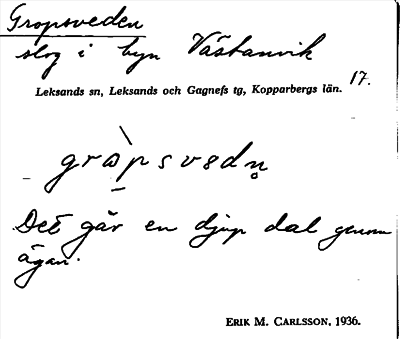 Gropsveden
slog i byn Västanvik
17.
Leksands sn, Leksands och Gagnefs tg, Kopparbergs län.
gròpsvedn̥
Det går en djup dal genom
ägan.
ERIK M. CARLSSON, 1936.